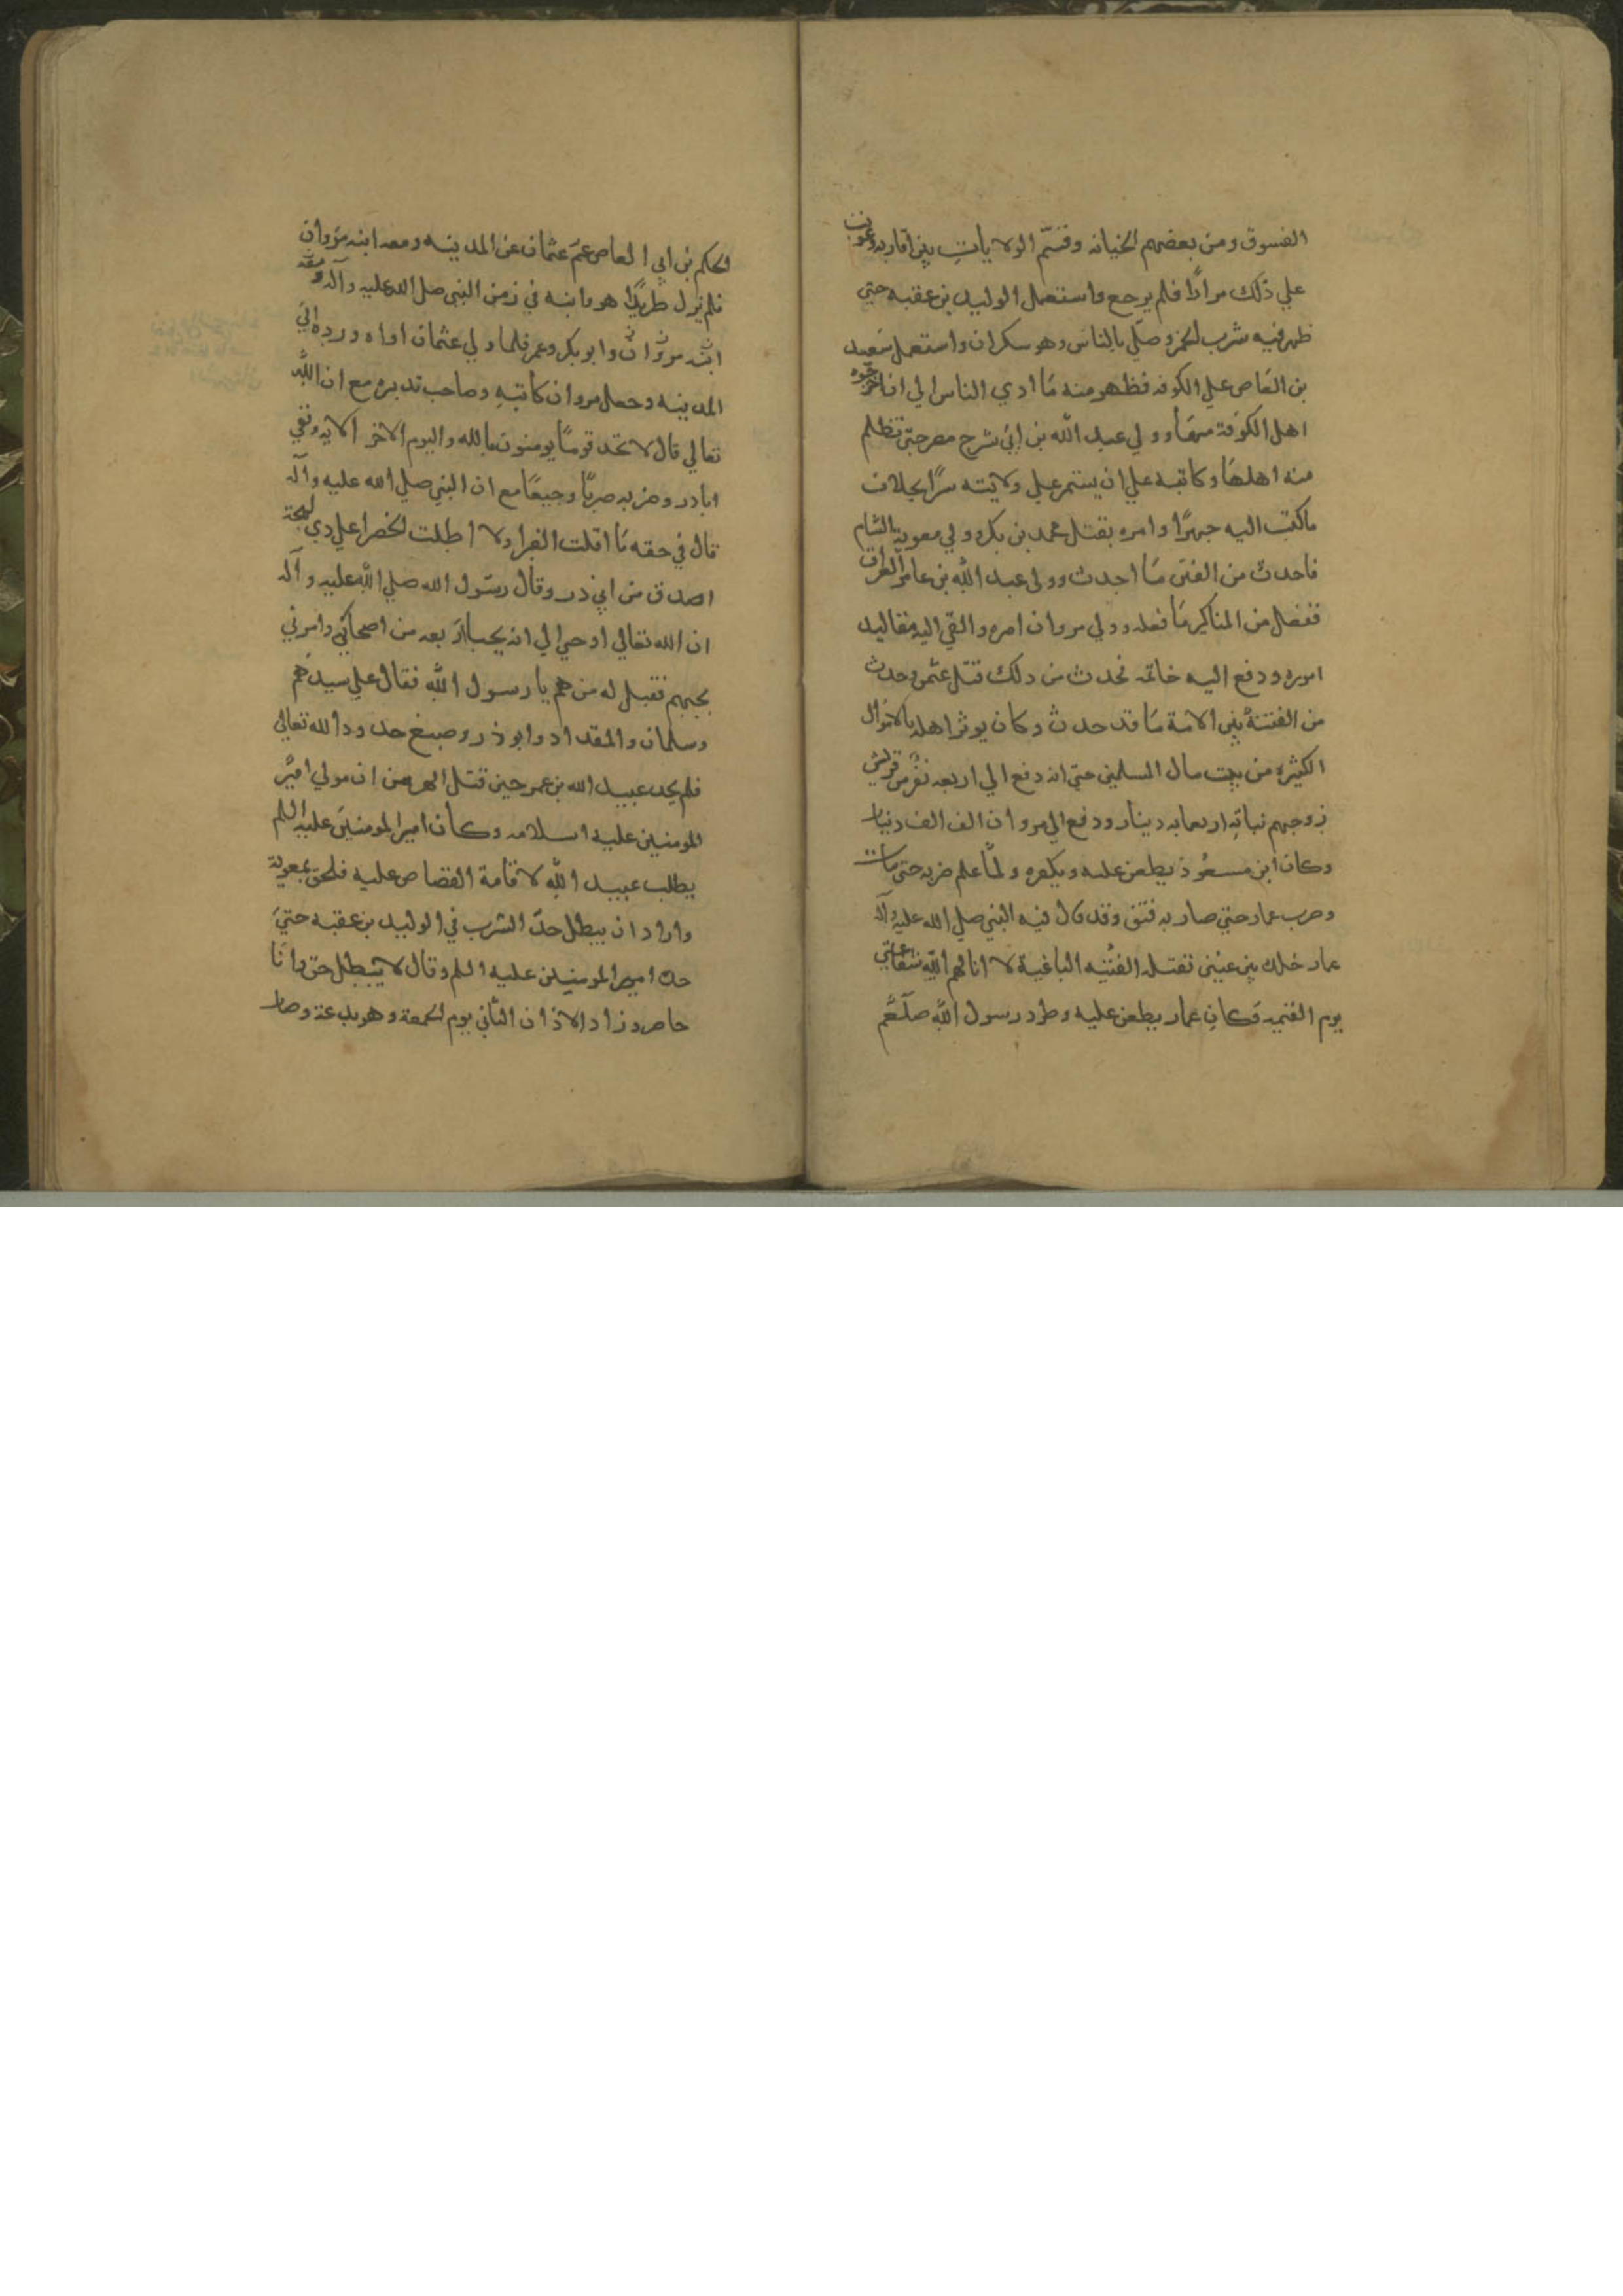 الفسوق ومن بعضهم الخيانه وقسّم الولايات بين اقاربه وعوتب
علي ذلك مرارًا فلم يرجع واستعمل الوليد بن عقبه حتي
ظهر فيه شرب الخمر وصلّي بالناس وهو سكران واستعمل سعيد
بن العاص علي الكوفه فظهر منه مَا ادي الناس الي ان اخرجوه
اهل الكوفة منهَا وولي عبد الله بن ابي سرح مصر حتي تظلم
منه اهلهَا وكاتبه علي ان يستمر علي ولايته سرًا بخلاف
ماكتب اليه جهرًا وامره بقتل محمد بن بكر وولي معوية الشام
فاحدث من الفتن مَا احدث وولي عبد الله بن عامر العراق
ففعل من المناكير مَا فعله وولي مروان امره والقي اليه مقاليد
اموره ودفع اليه خاتمه فحدث من دلك قتل عثمن وحدث
من الفتنة بين الامة مَا قد حدث وكان يوثر اهله بالاموال
الكثيره من بيت مال المسلمين حتي انه دفع الي اربعه نفر من قريش
زوجهم نباته اربعمايه دينار ودفع الي مروان الف الف دنيار
وكان ابن مسعُود يطعن عليه ويكفره ولمّا علم ضربه حتي مات
وضرب عمار حتي صار به فتق وقد قال فيه النبي صلي الله عليه وآله
عمار خلك بين عيني تقتله الفئيه الباغية لا انالهم الله شفاعتي
يوم القيمه وكان عمار يطعن عليه وطرد رسول الله صلعم
الحكم بن ابي العاص عمّ عثمان عن المدينه ومعه ابنه مروان
فلم يزل طريدًا هو وابنه في زمن النبي صلي الله عليه وآله ومعه
ابنه مروان وابو بكر وعمر فلما ولي عثمان اواه ورده الي
المدينه وجعل مروان كاتبه وصاحب تدبره مع ان الله
تعالي قال لا تجد قومًا يومنون بالله واليوم الاخر الايه ونفي
ابادر وضربه ضربًا وجيعًا مع ان النبي صلي الله عليه وآله
قال في حقه مَا اقلت الغبرا ولا اظلت الخضرا علي دي لهجة
اصدق من ابي ذر وقال رسول الله صلي الله عليه وآله
ان الله تعالي اوحي الي انه يحب اربعه من اصحابي وامرني
بحبهم فقيل له من هم يا رسول الله فقال علي سيدهم
وسلمان والمقداد وابو ذر وضيع حدود الله تعالي
فلم يحد عبيد الله بن عمر حين قتل الهرمزان مولي امير
المومنين علية السلامه وكان امير المومنين عليه السلم
يطلب عبيد الله لاقامة القصاص عليه فلحق بمعوية
واراد ان يبطل حدّ الشرب في الوليد بن عقبه حتي
حده امير المومنين علية السلم وقال لا يبطل حق وانَا
حاضر وزاد الاذان الثاني يوم الجمعة وهو بدعة وصار